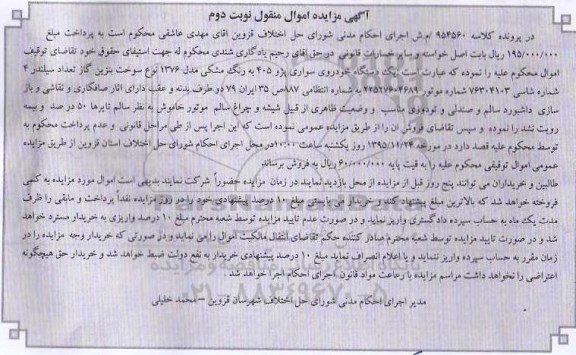 آگهی مزایده اموال منقول نوبت دوم
در پرونده کلاسه ۹۵۴۵۶۰ /م.ش اجرای احکام مدنی شورای حل اختلاف قزوین آقای مهدی عاشقی محکوم است به پرداخت مبلغ
۱۹۵/۰۰۰/۰۰۰ ریال بابت اصل خواسته و سایر خسارات قانونی در حق آقای رحیم یادگاری شندی محکوم له جهت استیفای حقوق خود تقاضای توقیف
اموال محکوم علیه را نموده که عبارت است یک دستگاه خودروی سواری پژو ۴۰۵ به رنگ مشکی مدل ۱۳۷۶ نوع سوخت بنزین گاز تعداد سیلندر ۴
شماره شاسی ۷۶۳۰۴۱۰۳ شماره موتور ۲۲۵۲۷۶۰۴۶۸۹ به شماره انتظامی ۱۸۷ص۳۵ ایران ۷۹ دو طرف بدنه و عقب دارای آثار صافکاری و نقاشی و باز
سازی داشبورد سالم و صندلی و تودوزی مناسب و وضعیت ظاهری از قبیل شیشه و چراغ سالم موتور خاموش به نظر سالم تایرها ۵۰ درصد و بیمه
رویت نشد را نموده و سپس تقاضای فروش آن را از طریق مزایده عمومی نموده است که این اجرا پس از طی مراحل قانونی و عدم پرداخت محکوم به
توسط محکوم علیه قصد دارد در مورخه ۱۳۹۵/۱۱/۲۴ روز یکشنبه ساعت ۱۰:۰۰در محل اجرای احکام شورای حل اختلاف استان قزوین از طریق مزایده
عمومی اموال توقیفی محکوم علیه را به قیت پایه ۶۰/۰۰۰/۰۰۰ ریال به فروش برساند.
طالبین و خریداران می توانند پنج روز قبل از مزایده از محل بازدید نمایند در زمان مزایده حضوراً شرکت نمایند بدیهی است اموال مورد مزایده به کسی
فروخته خواهد شد که بالاترین مبلغ پیشنهاد کند و خریدار می بایستی مبلغ ۱۰ درصد پیشنهادی خود را در روز مزایده نقداً پرداخت و مابقی را ظرف
مدت یک ماه به حساب سپرده دادگستری واریز نماید و در صورت عدم تایید مزایده توسط شعبه محترم مبلغ ۱۰ درصد واریزی به خریدار مسترد خواهد
شد و در صورت تایید مزایده توسط شعبه محترم صادر کننده حکم تقاضای انتقال مالکیت اموال را می نماید و در صورتی که خریدار وجه مزایده را در
زمان مقرر به حساب سپرده واریز ننماید و یا اعلام انصراف نماید مبلغ ۱۰ درصد پیشنهادی خریدار به نفع دولت ضبط خواهد شد و خریدار حق هیچگونه
اعتراضی را نخواهد داشت مراسم مزایده با رعایت مواد قانون اجرای احکام اجرا خواهد شد .
مدیر اجرای احکام مدنی شورای حل اختلاف شهرسان قزوین – محمد خلیلی
۰۲۱-۸۸۳۴۹۶۷۰-۵